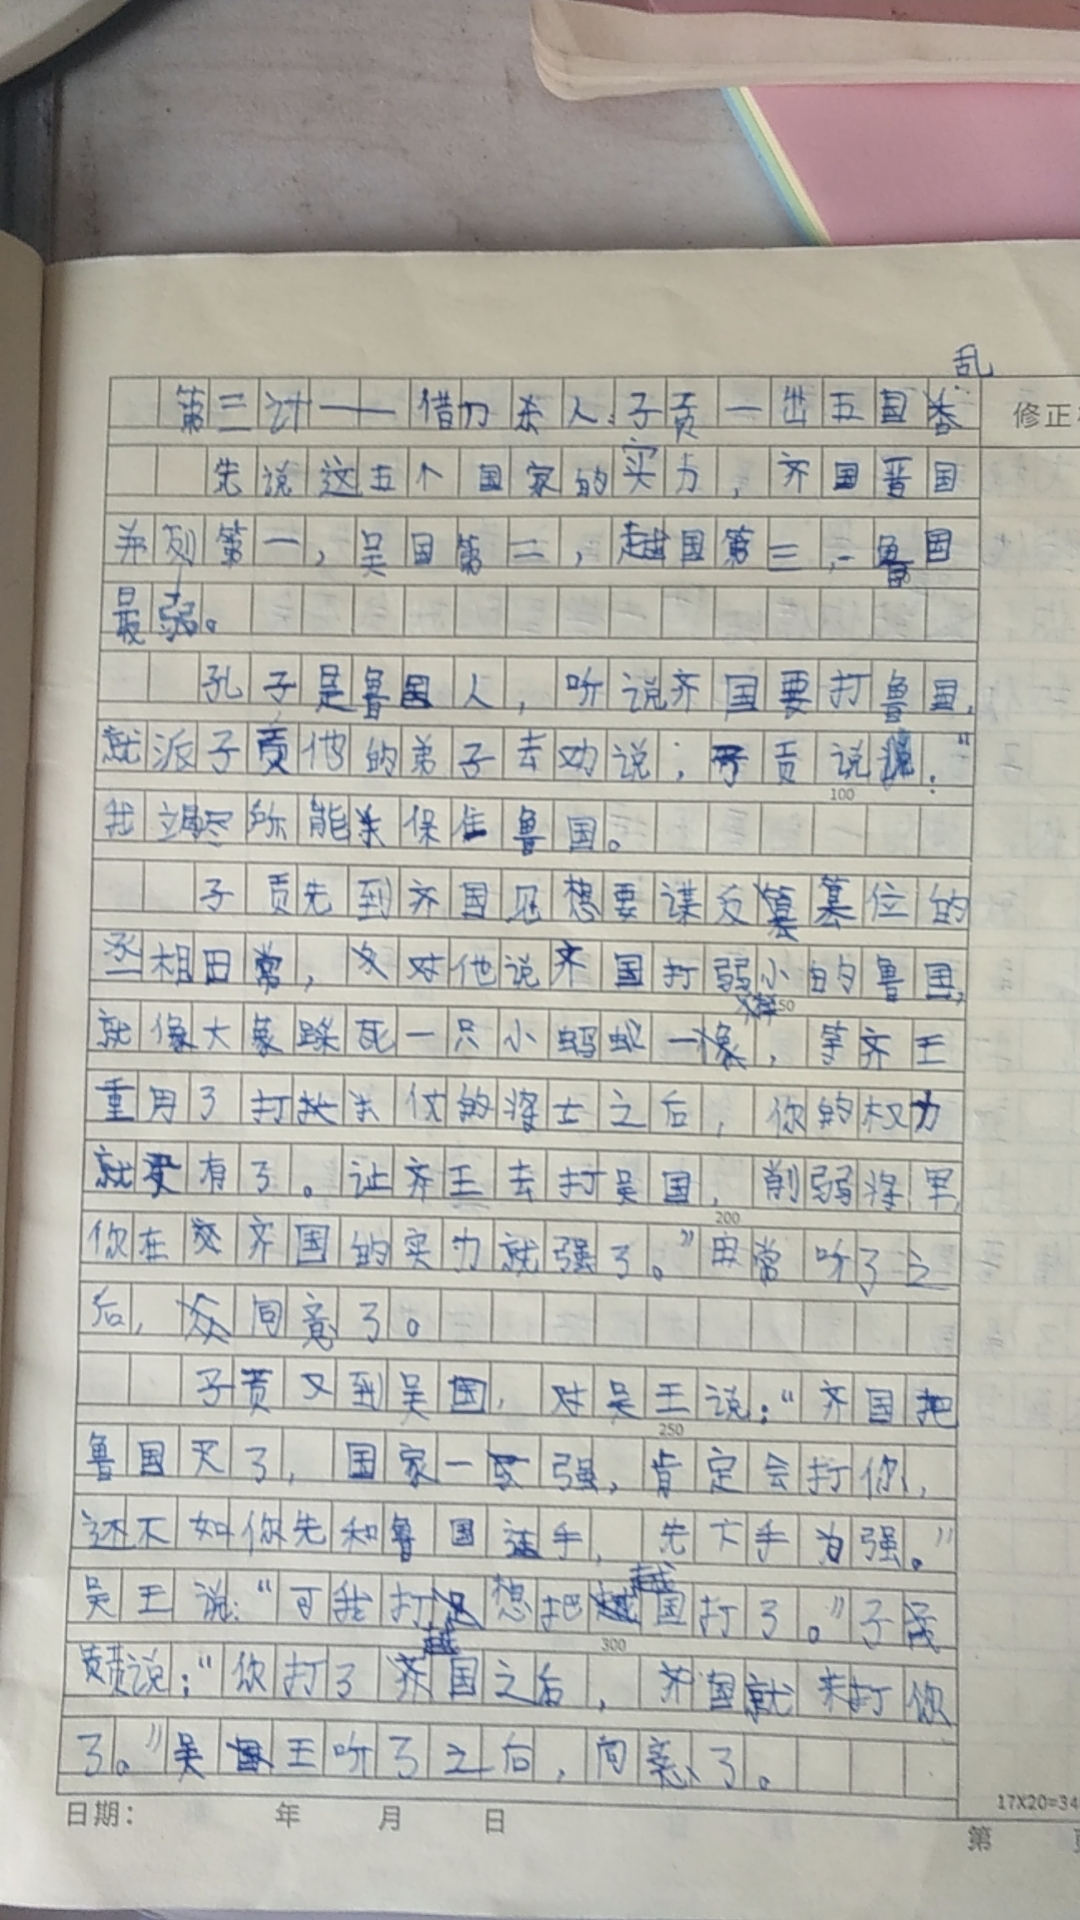 乱
第三计——借刀杀人:子贡一出五国
修正
先说这五个国家的实力，齐国晋国
并列第一，吴国第二，越国第三，鲁国
最弱。
孔子是鲁国人，听说齐国要打鲁国，
就派子贡他的弟子去劝说；子贡说："
100
我竭尽所能保住鲁国。
子贡先到齐国见想要谋反篡位的
丞相田常，对他说齐国打弱小的鲁国，
就像大象踩死一只小蚂蚁一样，等齐王
重用了打仗的将士之后，你的权力
就没有了。让齐王去打吴国，削弱将军，
200
你在齐国的实力就强了。"田常听了之
后，同意了。
子贡又到吴国，对吴王说："齐国把
250
鲁国灭了，国家一变强，肯定会打你，
还不如你先和鲁国联手，先下手为强。"
吴王说："可我打想把越国打了。"子
300
贡说："你打了越国之后，齐国就来打你
了。"吴王听了之后，同意了。
日期： 年 月 日
17X20=34
第